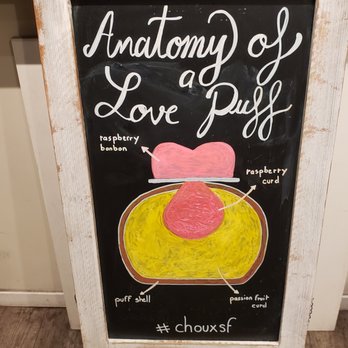 Anatomy of
a
Love Puff
raspberry
bonbon
raspberry
curd
puff shell
passion fruit
curd
#chouxsf